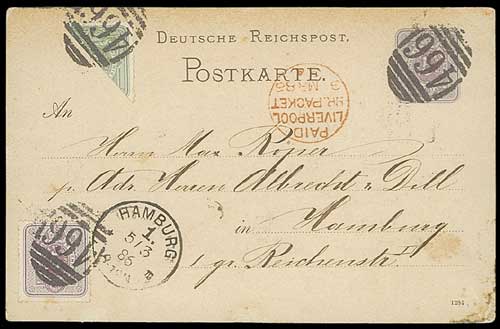 DEUTSCHE REICHSPOST.
POSTKARTE.
466
466
PAID
LIVERPOOL
BR. PACKET
3 MR 86
An
Herrn Max Röper
p. Adr. Herren Albrecht & Dill
in Hamburg
gr. Reichenstr.
466
HAMBURG
1.
5/3
86
1284